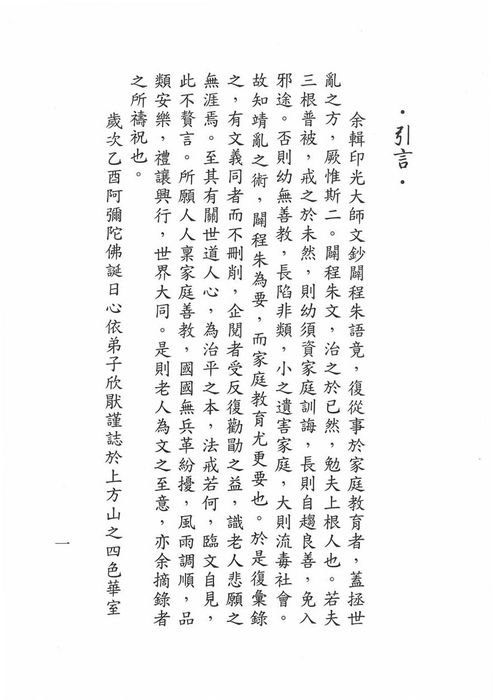 ・引言・
余輯印光大師文鈔闢程朱語竟，復從事於家庭教育者，蓋拯世
亂之方，厥惟斯二。闢程朱文，治之於已然，勉夫上根人也。若夫
三根普被，戒之於未然，則幼須資家庭訓誨，長則自趨良善，免入
邪途。否則幼無善教，長陷非類，小之遺害家庭，大則流毒社會。
故知靖亂之術，闢程朱為要，而家庭教育尤更要也。於是復彙錄
之，有文義同者而不刪削，企閱者受反復勸勖之益，識老人悲願之
無涯焉。至其有關世道人心，為治平之本，法戒若何，臨文自見，
此不贅言。所願人人稟家庭善教，國國無兵革紛擾，風雨調順，品
類安樂，禮讓興行，世界大同。是則老人為文之至意，亦余摘錄者
之所禱祝也。
歲次乙酉阿彌陀佛誕日心依弟子欣厭謹誌於上方山之四色華室
一